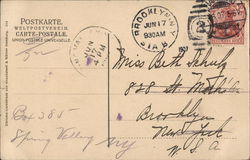 POSTKARTE.
WELTPOSTVEREIN.
CARTE-POSTALE.
UNION POSTALE UNIVERSELLE.
BROOKLYN. N.Y.
JUN 17
930AM
STA. B.
JUN
17
4 PM
2
Miss Beth Schulz
828 St. Mark's
Brooklyn
New York
U. S. A
Box 385
Spring Valley
NY